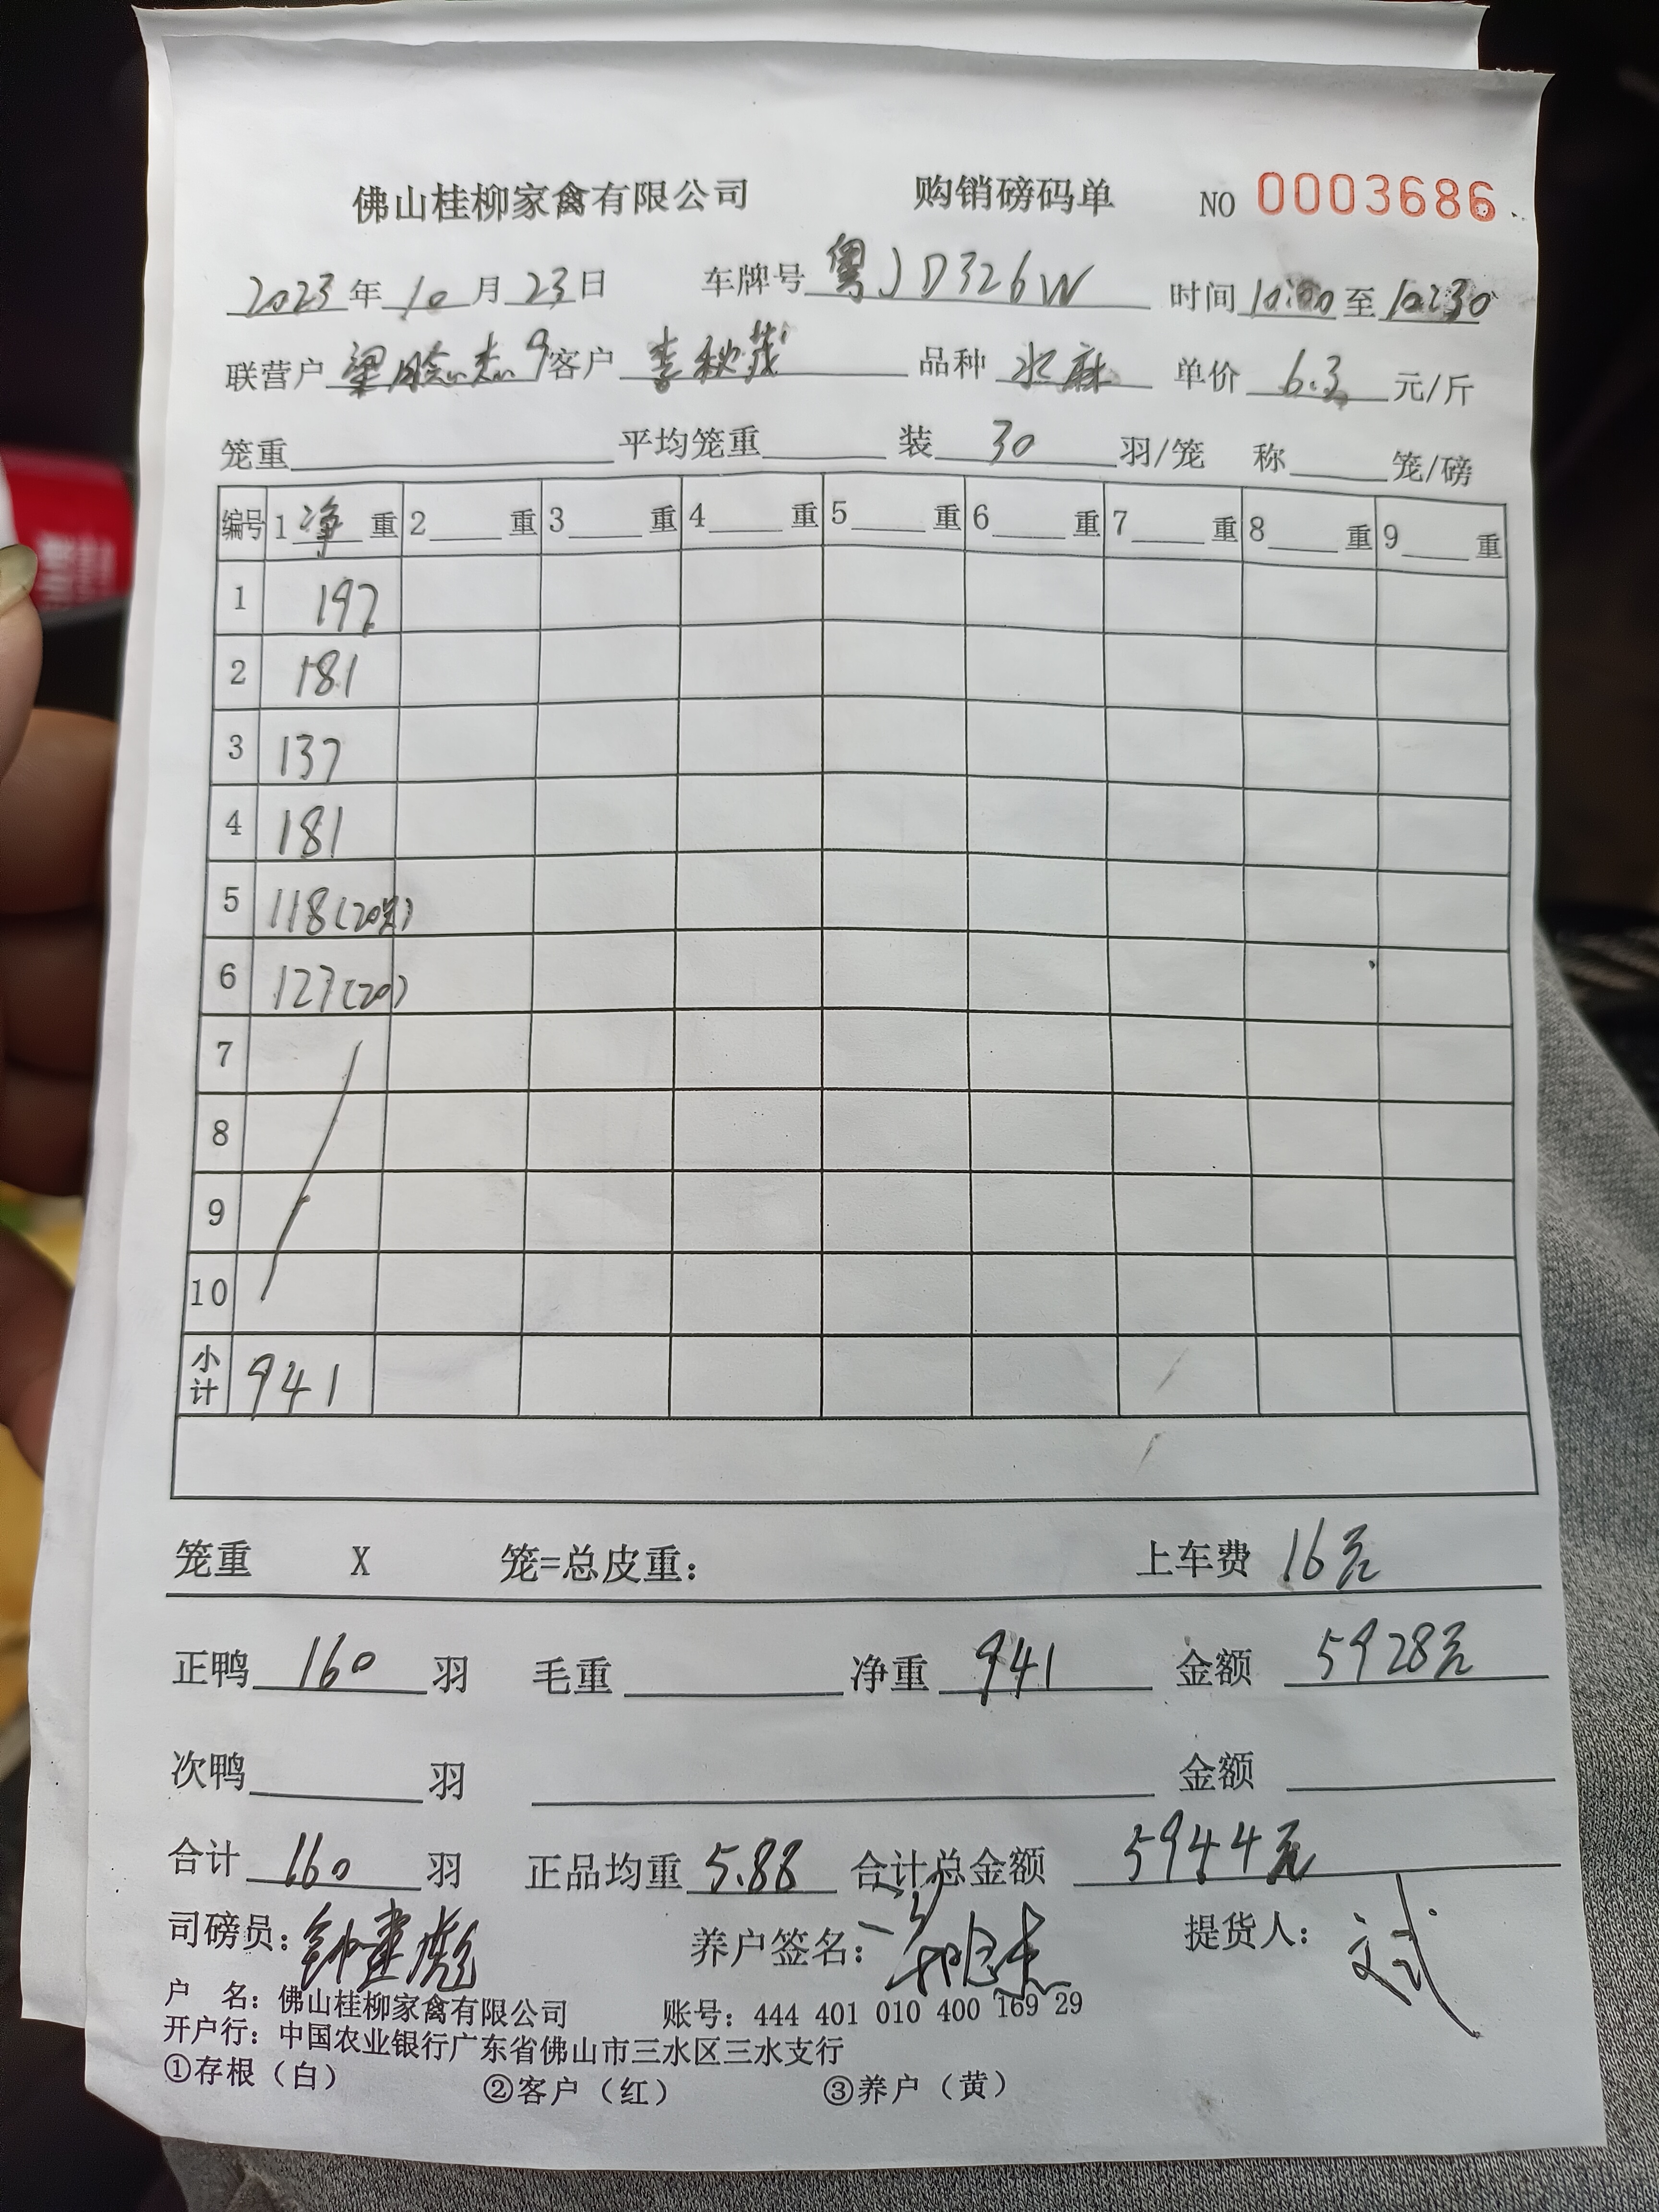 佛山桂柳家禽有限公司 购销磅码单 NO 0003686
2023年10月23日 车牌号 粤JD326W 时间 10:00 至 10:30
联营户 梁 杰 9 客户 李秋茂 品种 水麻 单价 6.3 元/斤
笼重 平均笼重 装 30 羽/笼 称 笼/磅
编号 1 净 重 2 重 3 重 4 重 5 重 6 重 7 重 8 重 9 重
1 197
2 181
3 137
4 181
5 118(20只)
6 127(20)
7
8
9
10
小计 941
笼重 X 笼=总皮重: 上车费 16元
正鸭 160 羽 毛重 净重 941 金额 5928元
次鸭 羽 金额
合计 160 羽 正品均重 5.88 合计总金额 5944元
司磅员: 钟建彪 养户签名: 提货人:
户 名: 佛山桂柳家禽有限公司 账号: 444 401 010 400 169 29
开户行: 中国农业银行广东省佛山市三水区三水支行
①存根（白） ②客户（红） ③养户（黄）